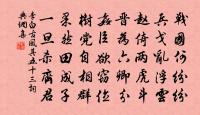 戰國何紛紛
兵戈亂浮雲
趙倚兩虎斗
晉為六卿分
姦臣欲竊位
樹黨自相群
果然田成子
一旦杀齊君
李白古風其五十三詞
典網集